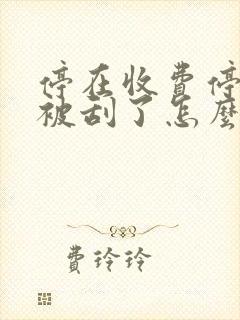 停在收费停
被刮了怎麼
费玲玲